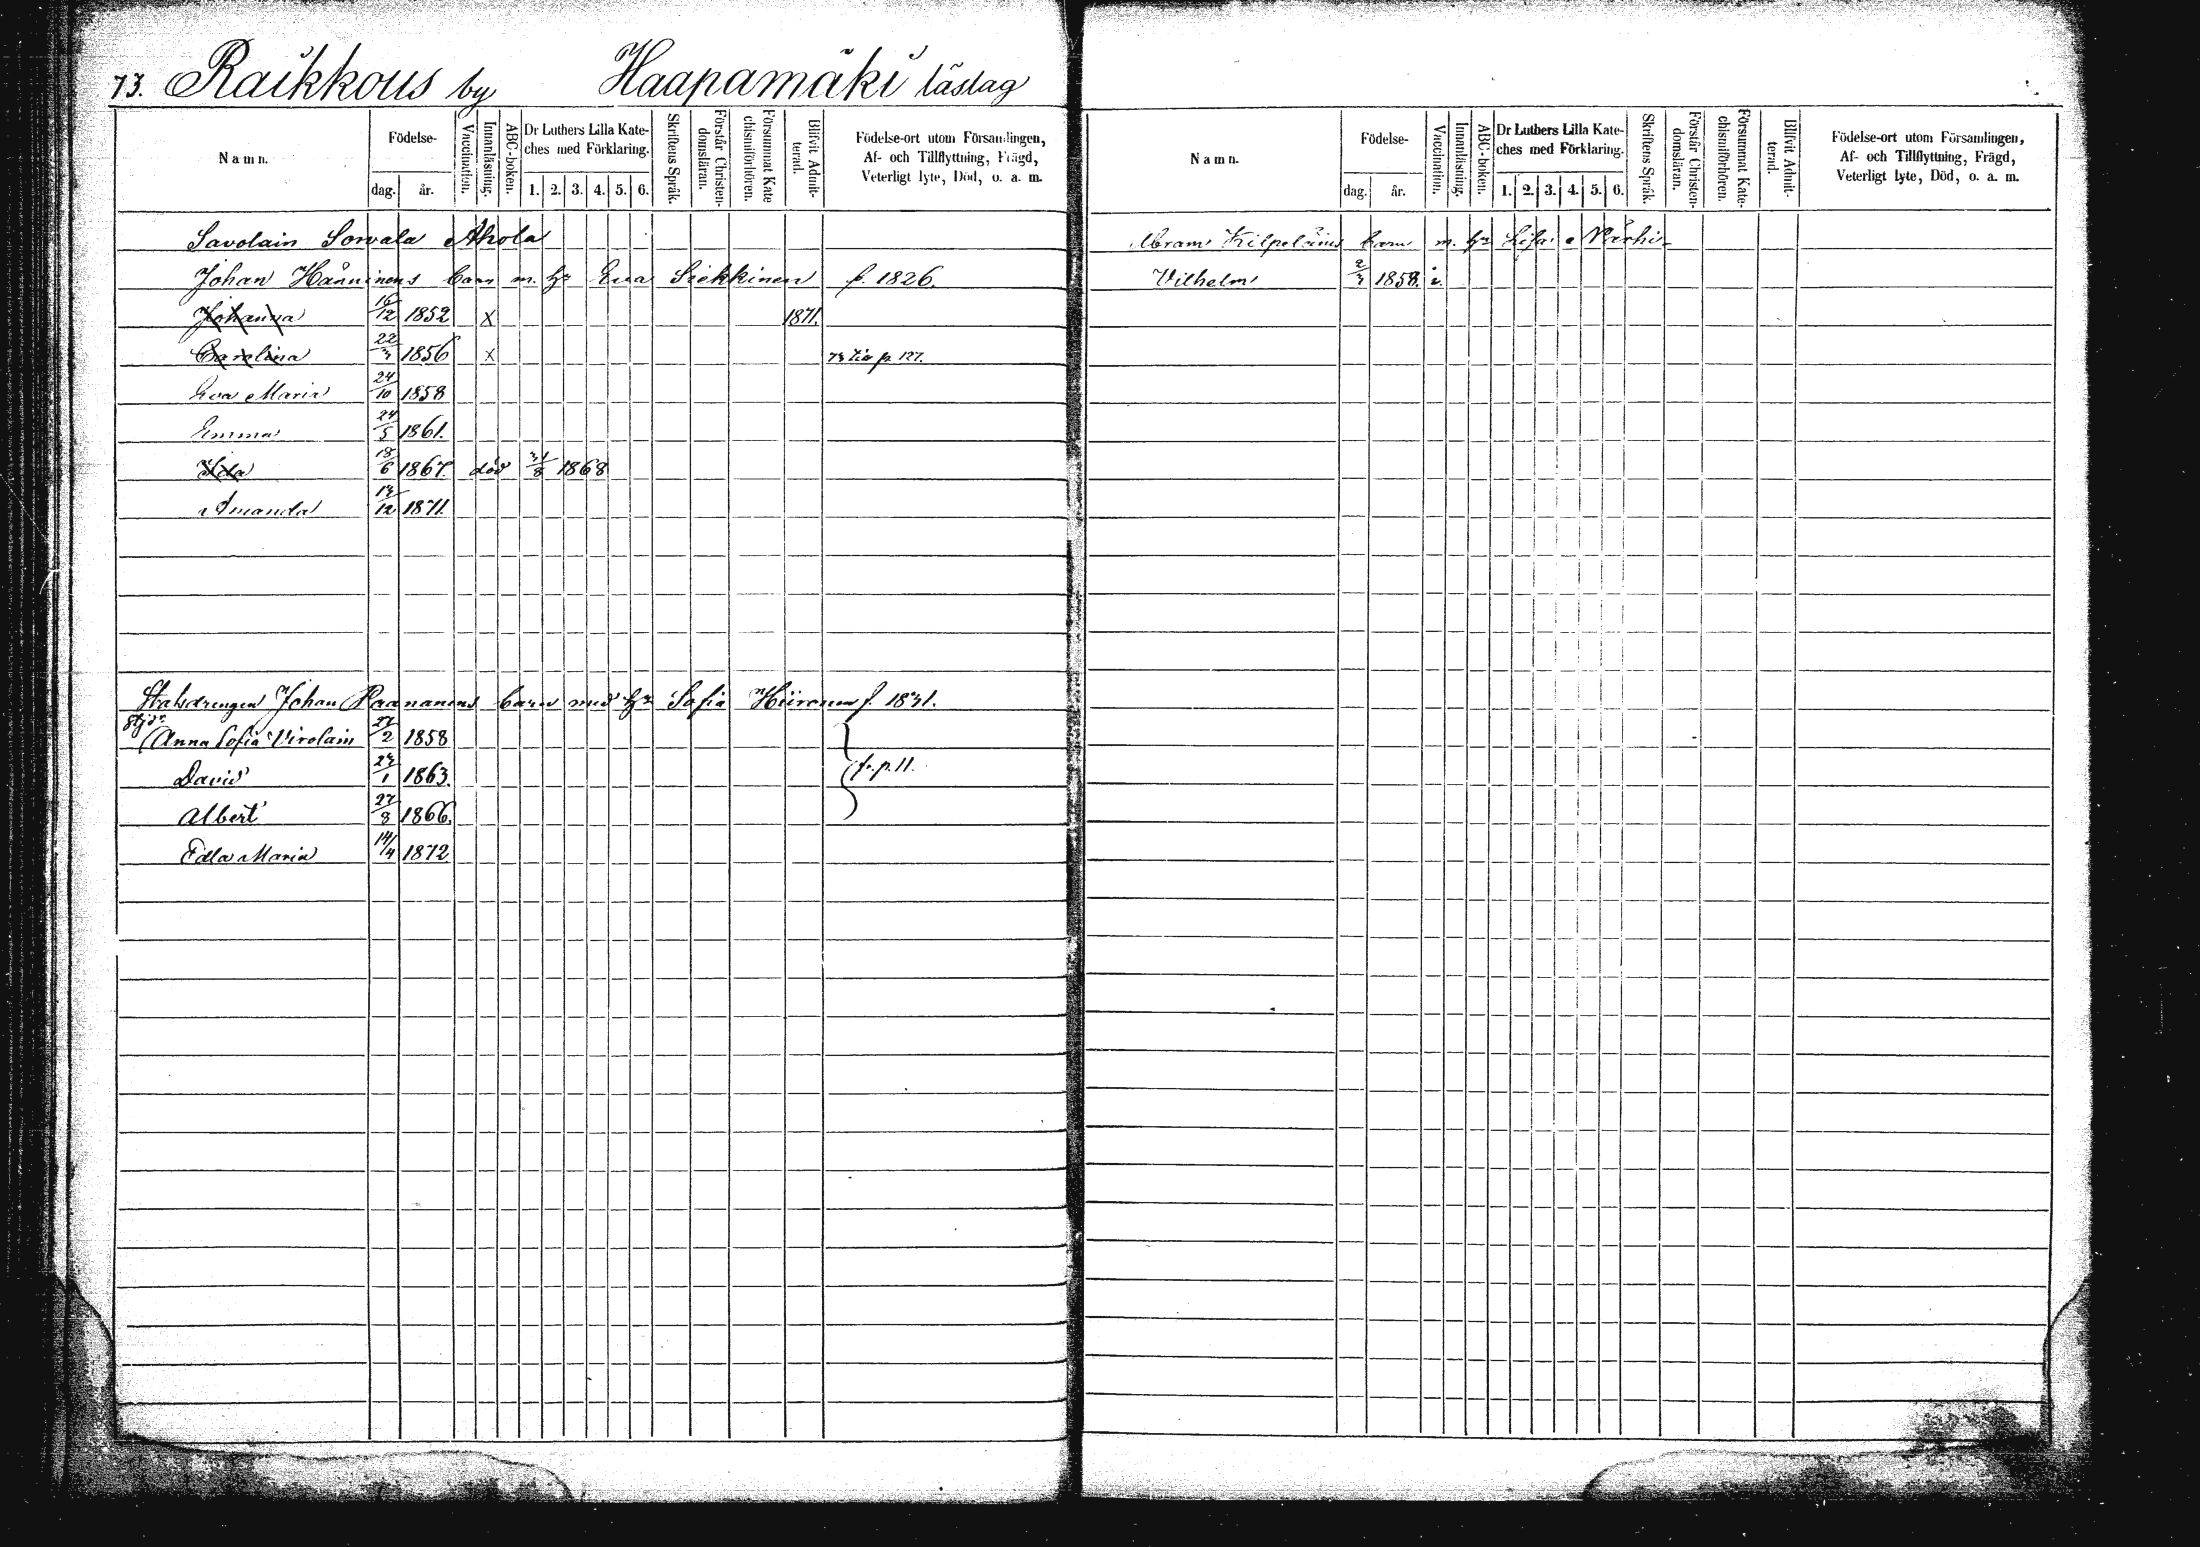 73. Raikkous by Haapamäki läslag
Namn. Födelse- dag. år. Vaccination. Innanläsning. ABC-boken. Dr Luthers Lilla Kate-ches med Förklaring. 1. 2. 3. 4. 5. 6. Skriftens Språk. Förstår Christen-domsläran. Försummat Kate chismiförhören. Blifvit Admit-terad. Födelse-ort utom Församlingen, Af- och Tillflyttning, Frägd, Veterligt lyte, Död, o. a. m.
Savolain Sorvala Ahola
Johan Hänninens barn m. hr Eva Siekkinen f. 1826.
Johanna 16/12 1852 X 1871.
Carolina 22/3 1856 X p. 127.
Eva Maria 24/10 1858
Emma 24/5 1861.
Ida 18/6 1867. död 31/8 1868
Amanda 13/12 1871.
Stalsdrengen Johan Paananens barn med hr Sofia Hiironen f. 1831.
Anna Sofia Virolain 27/2 1858
David 23/1 1863. fr. p. 11.
Albert 27/8 1866.
Edla Maria 14/4 1872
Namn. Födelse- dag. år. Vaccination. Innanläsning. ABC-boken. Dr Luthers Lilla Kate-ches med Förklaring. 1. 2. 3. 4. 5. 6. Skriftens Språk. Förstår Christen-domsläran. Försummat Kate-chismiförhören. Blifvit Admit-terad. Födelse-ort utom Församlingen, Af- och Tillflyttning, Frägd, Veterligt lyte, Död, o. a. m.
Abram Kilpeläins barn m. hr Lisa Närhi
Wilhelm 2/3 1858. v.